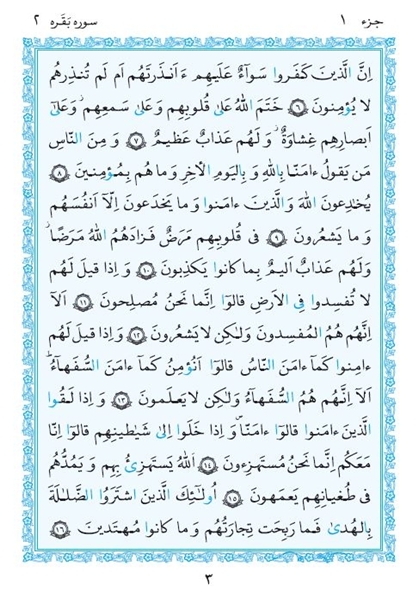 جزء ۱ سوره بَقَره ۲
اِنَّ الَّذينَ كَفَروا سَوآءٌ عَلَيهِم ءَاَنذَرتَهُم اَم لَم تُنذِرهُم
لا يُؤمِنونَ ﴿۶﴾ خَتَمَ اللهُ عَلىٰ قُلوبِهِم وَ عَلىٰ سَمعِهِم ۖ وَ عَلىٰٓ
اَبصارِهِم غِشاوَةٌ ۖ وَ لَهُم عَذابٌ عَظيمٌ ﴿۷﴾ وَ مِنَ النّاسِ
مَن يَقولُ ءامَنّا بِاللهِ وَ بِاليَومِ الأخِرِ وَ ما هُم بِمُؤمِنينَ ﴿۸﴾
يُخٰدِعونَ اللهَ وَ الَّذينَ ءامَنوا وَ ما يَخدَعونَ اِلّآ اَنفُسَهُم
وَ ما يَشعُرونَ ﴿۹﴾ فى قُلوبِهِم مَرَضٌ فَزادَهُمُ اللهُ مَرَضًا ۖ
وَ لَهُم عَذابٌ اَليمٌ بِما كانوا يَكذِبونَ ﴿۱۰﴾ وَ اِذا قيلَ لَهُم
لا تُفسِدوا فِى الاَرضِ قالوٓا اِنَّما نَحنُ مُصلِحونَ ﴿۱۱﴾ اَلآ
اِنَّهُم هُمُ المُفسِدونَ وَ لٰكِن لا يَشعُرونَ ﴿۱۲﴾ وَ اِذا قيلَ لَهُم
ءامِنوا كَمآ ءامَنَ النّاسُ قالوٓا اَنُؤمِنُ كَمآ ءامَنَ السُّفَهآءُ ۗ
اَلآ اِنَّهُم هُمُ السُّفَهآءُ وَ لٰكِن لا يَعلَمونَ ﴿۱۳﴾ وَ اِذا لَقُوا
الَّذينَ ءامَنوا قالوٓا ءامَنّا وَ اِذا خَلَوا اِلىٰ شَيٰطينِهِم قالوٓا اِنّا
مَعَكُم اِنَّما نَحنُ مُستَهزِءونَ ﴿۱۴﴾ اَللهُ يَستَهزِئُ بِهِم وَ يَمُدُّهُم
فى طُغيانِهِم يَعمَهونَ ﴿۱۵﴾ اُولٰٓئِكَ الَّذينَ اشتَرَوُا الضَّلٰلَةَ
بِالهُدىٰ فَما رَبِحَت تِجارَتُهُم وَ ما كانوا مُهتَدينَ ﴿۱۶﴾
۳